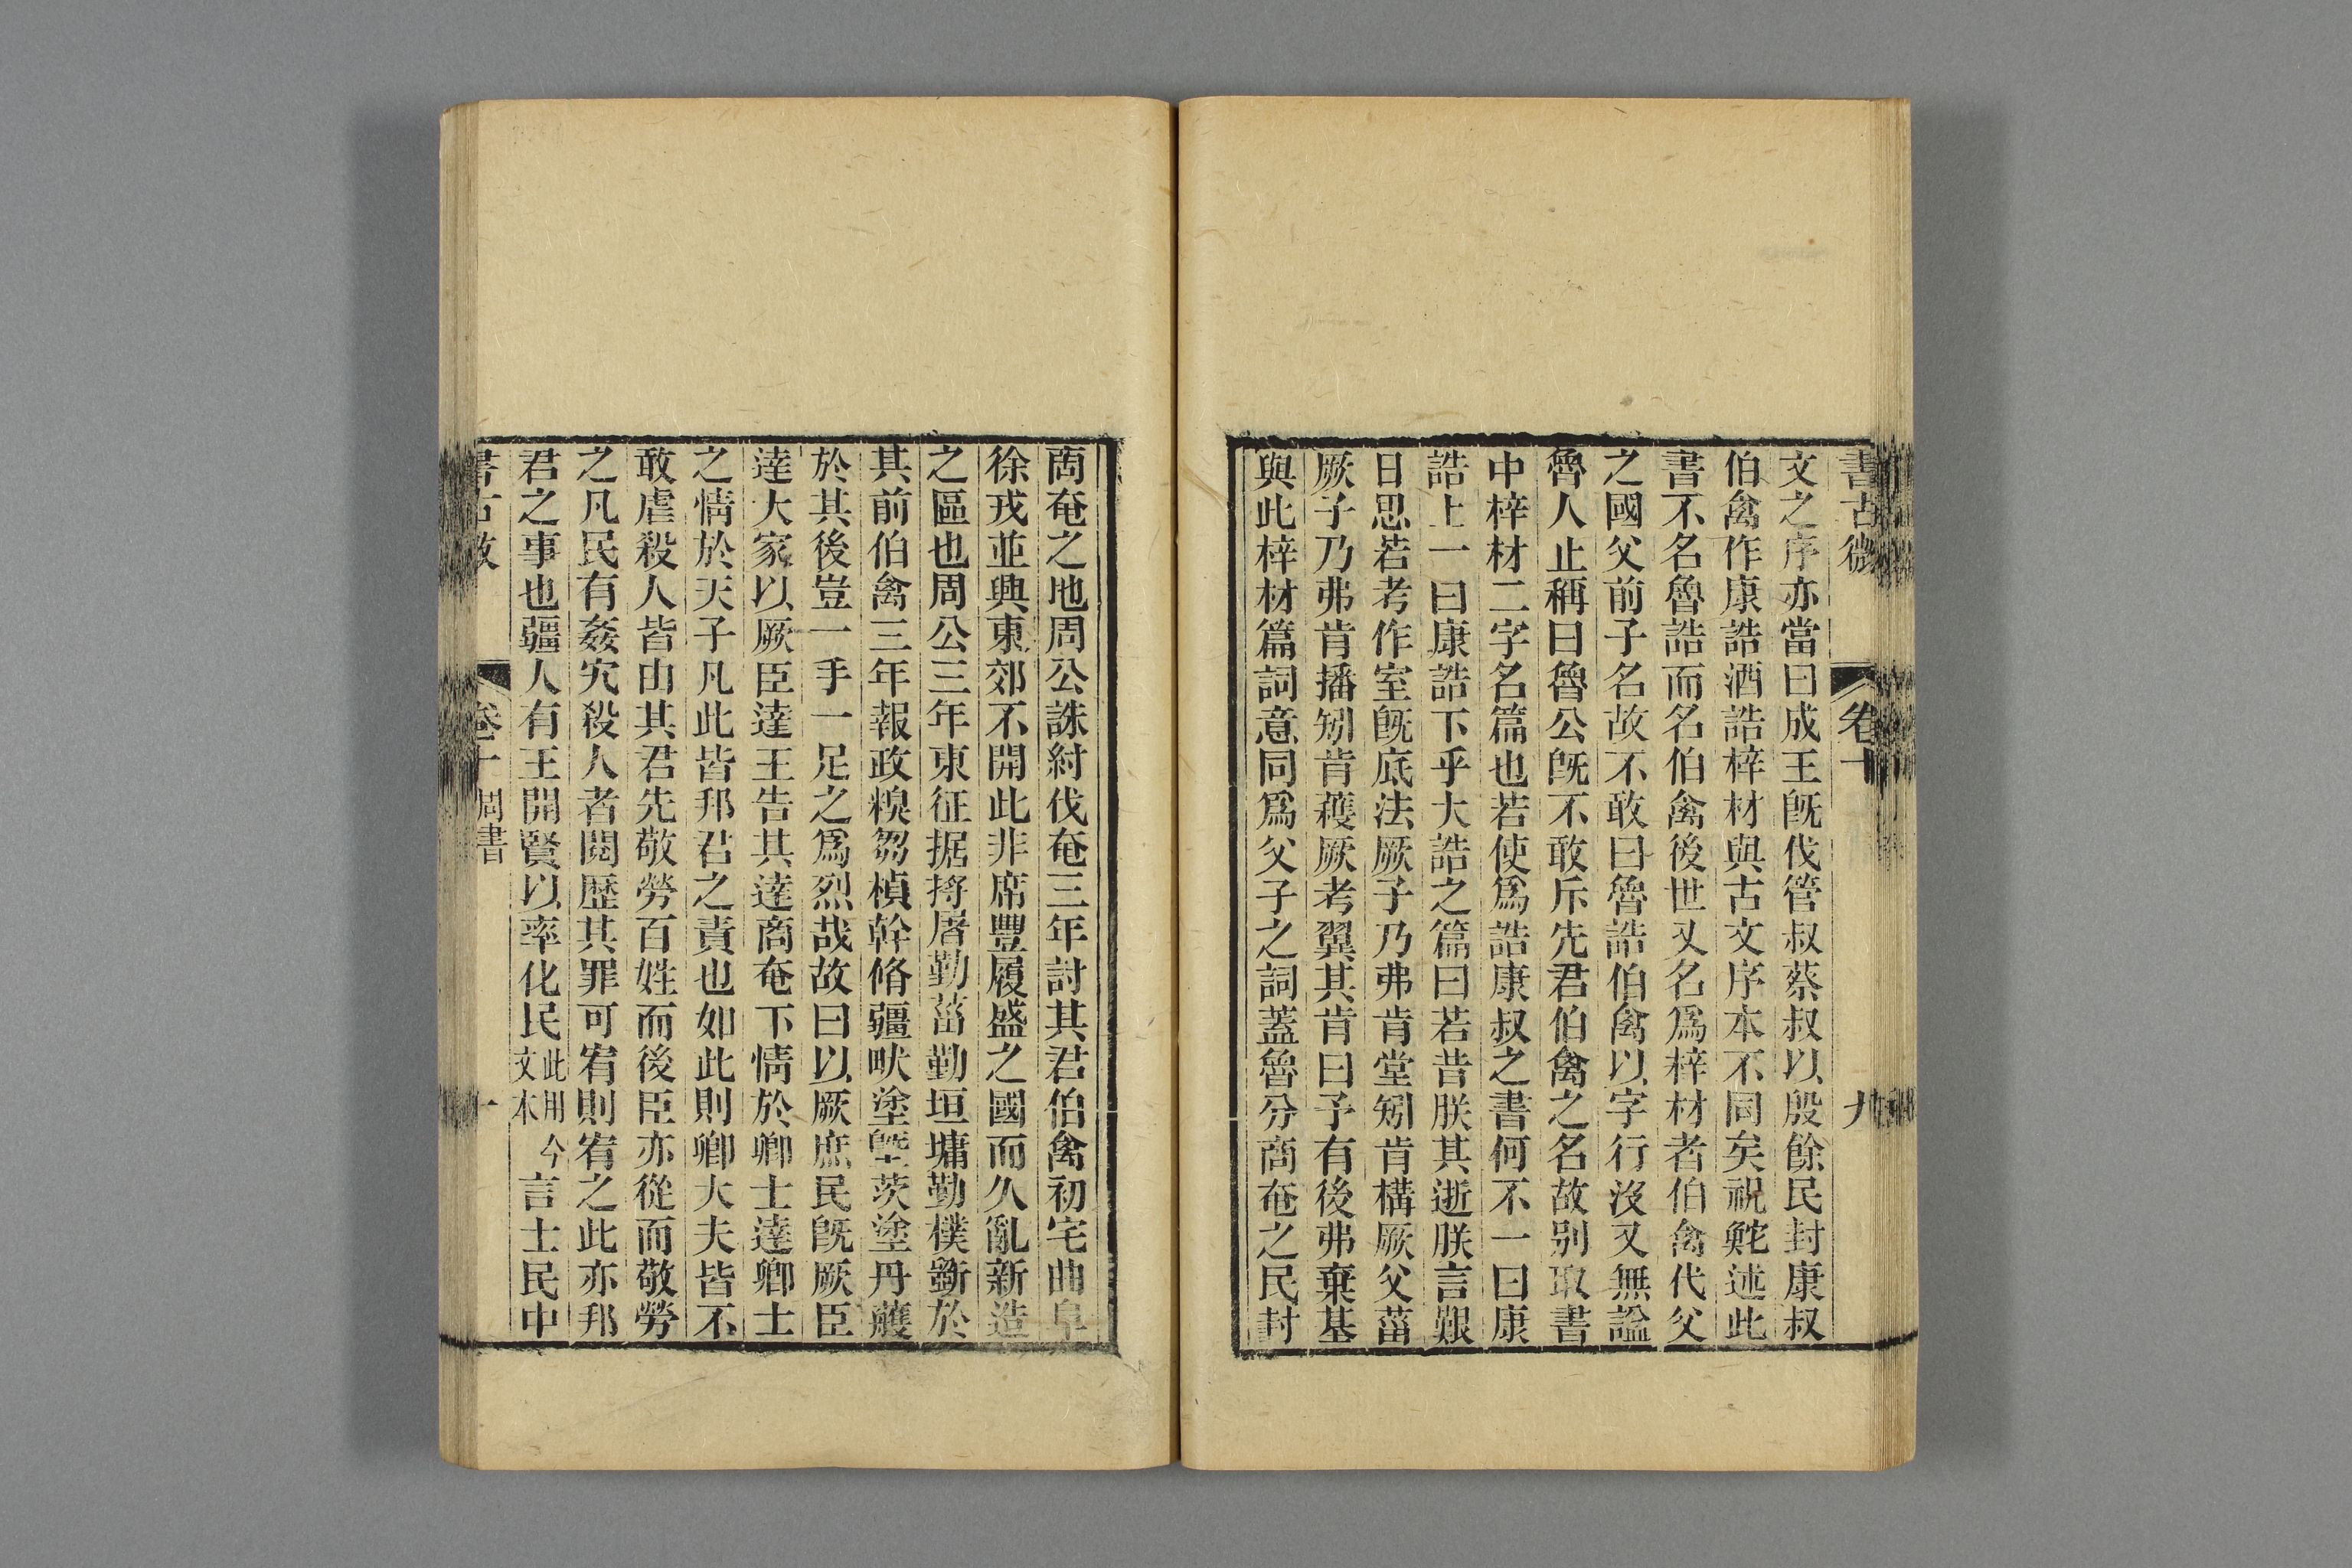 書古微 卷十 九
文之序亦當曰成王旣伐管叔蔡叔以殷餘民封康叔
伯禽作康誥酒誥梓材與古文序本不同矣祝鮀述此
書不名魯誥而名伯禽後世又名爲梓材者伯禽代父
之國父前子名故不敢曰魯誥伯禽以字行沒又無諡
魯人止稱曰魯公旣不敢斥先君伯禽之名故别取書
中梓材二字名篇也若使爲誥康叔之書何不一曰康
誥上一曰康誥下乎大誥之篇曰若昔朕其逝朕言艱
日思若考作室旣底法厥子乃弗肯堂矧肯構厥父菑
厥子乃弗肯播矧肯穫厥考翼其肯曰予有後弗棄基
與此梓材篇詞意同爲父子之詞蓋魯分商奄之民封
商奄之地周公誅紂伐奄三年討其君伯禽初宅曲阜
徐戎並興東郊不開此非席豐履盛之國而久亂新造
之區也周公三年東征据捋屠勤菑勤垣墉勤樸斲於
其前伯禽三年報政糗芻楨幹脩疆畎塗墍茨塗丹雘
於其後豈一手一足之爲烈哉故曰以厥庶民旣厥臣
達大家以厥臣達王告其達商奄下情於卿士達卿士
之情於天子凡此皆邦君之責也如此則卿大夫皆不
敢虐殺人皆由其君先敬勞百姓而後臣亦從而敬勞
之凡民有姦宄殺人者閱歷其罪可宥則宥之此亦邦
君之事也疆人有王開賢以率化民此用今文本言士民中
書古微 卷十 周書